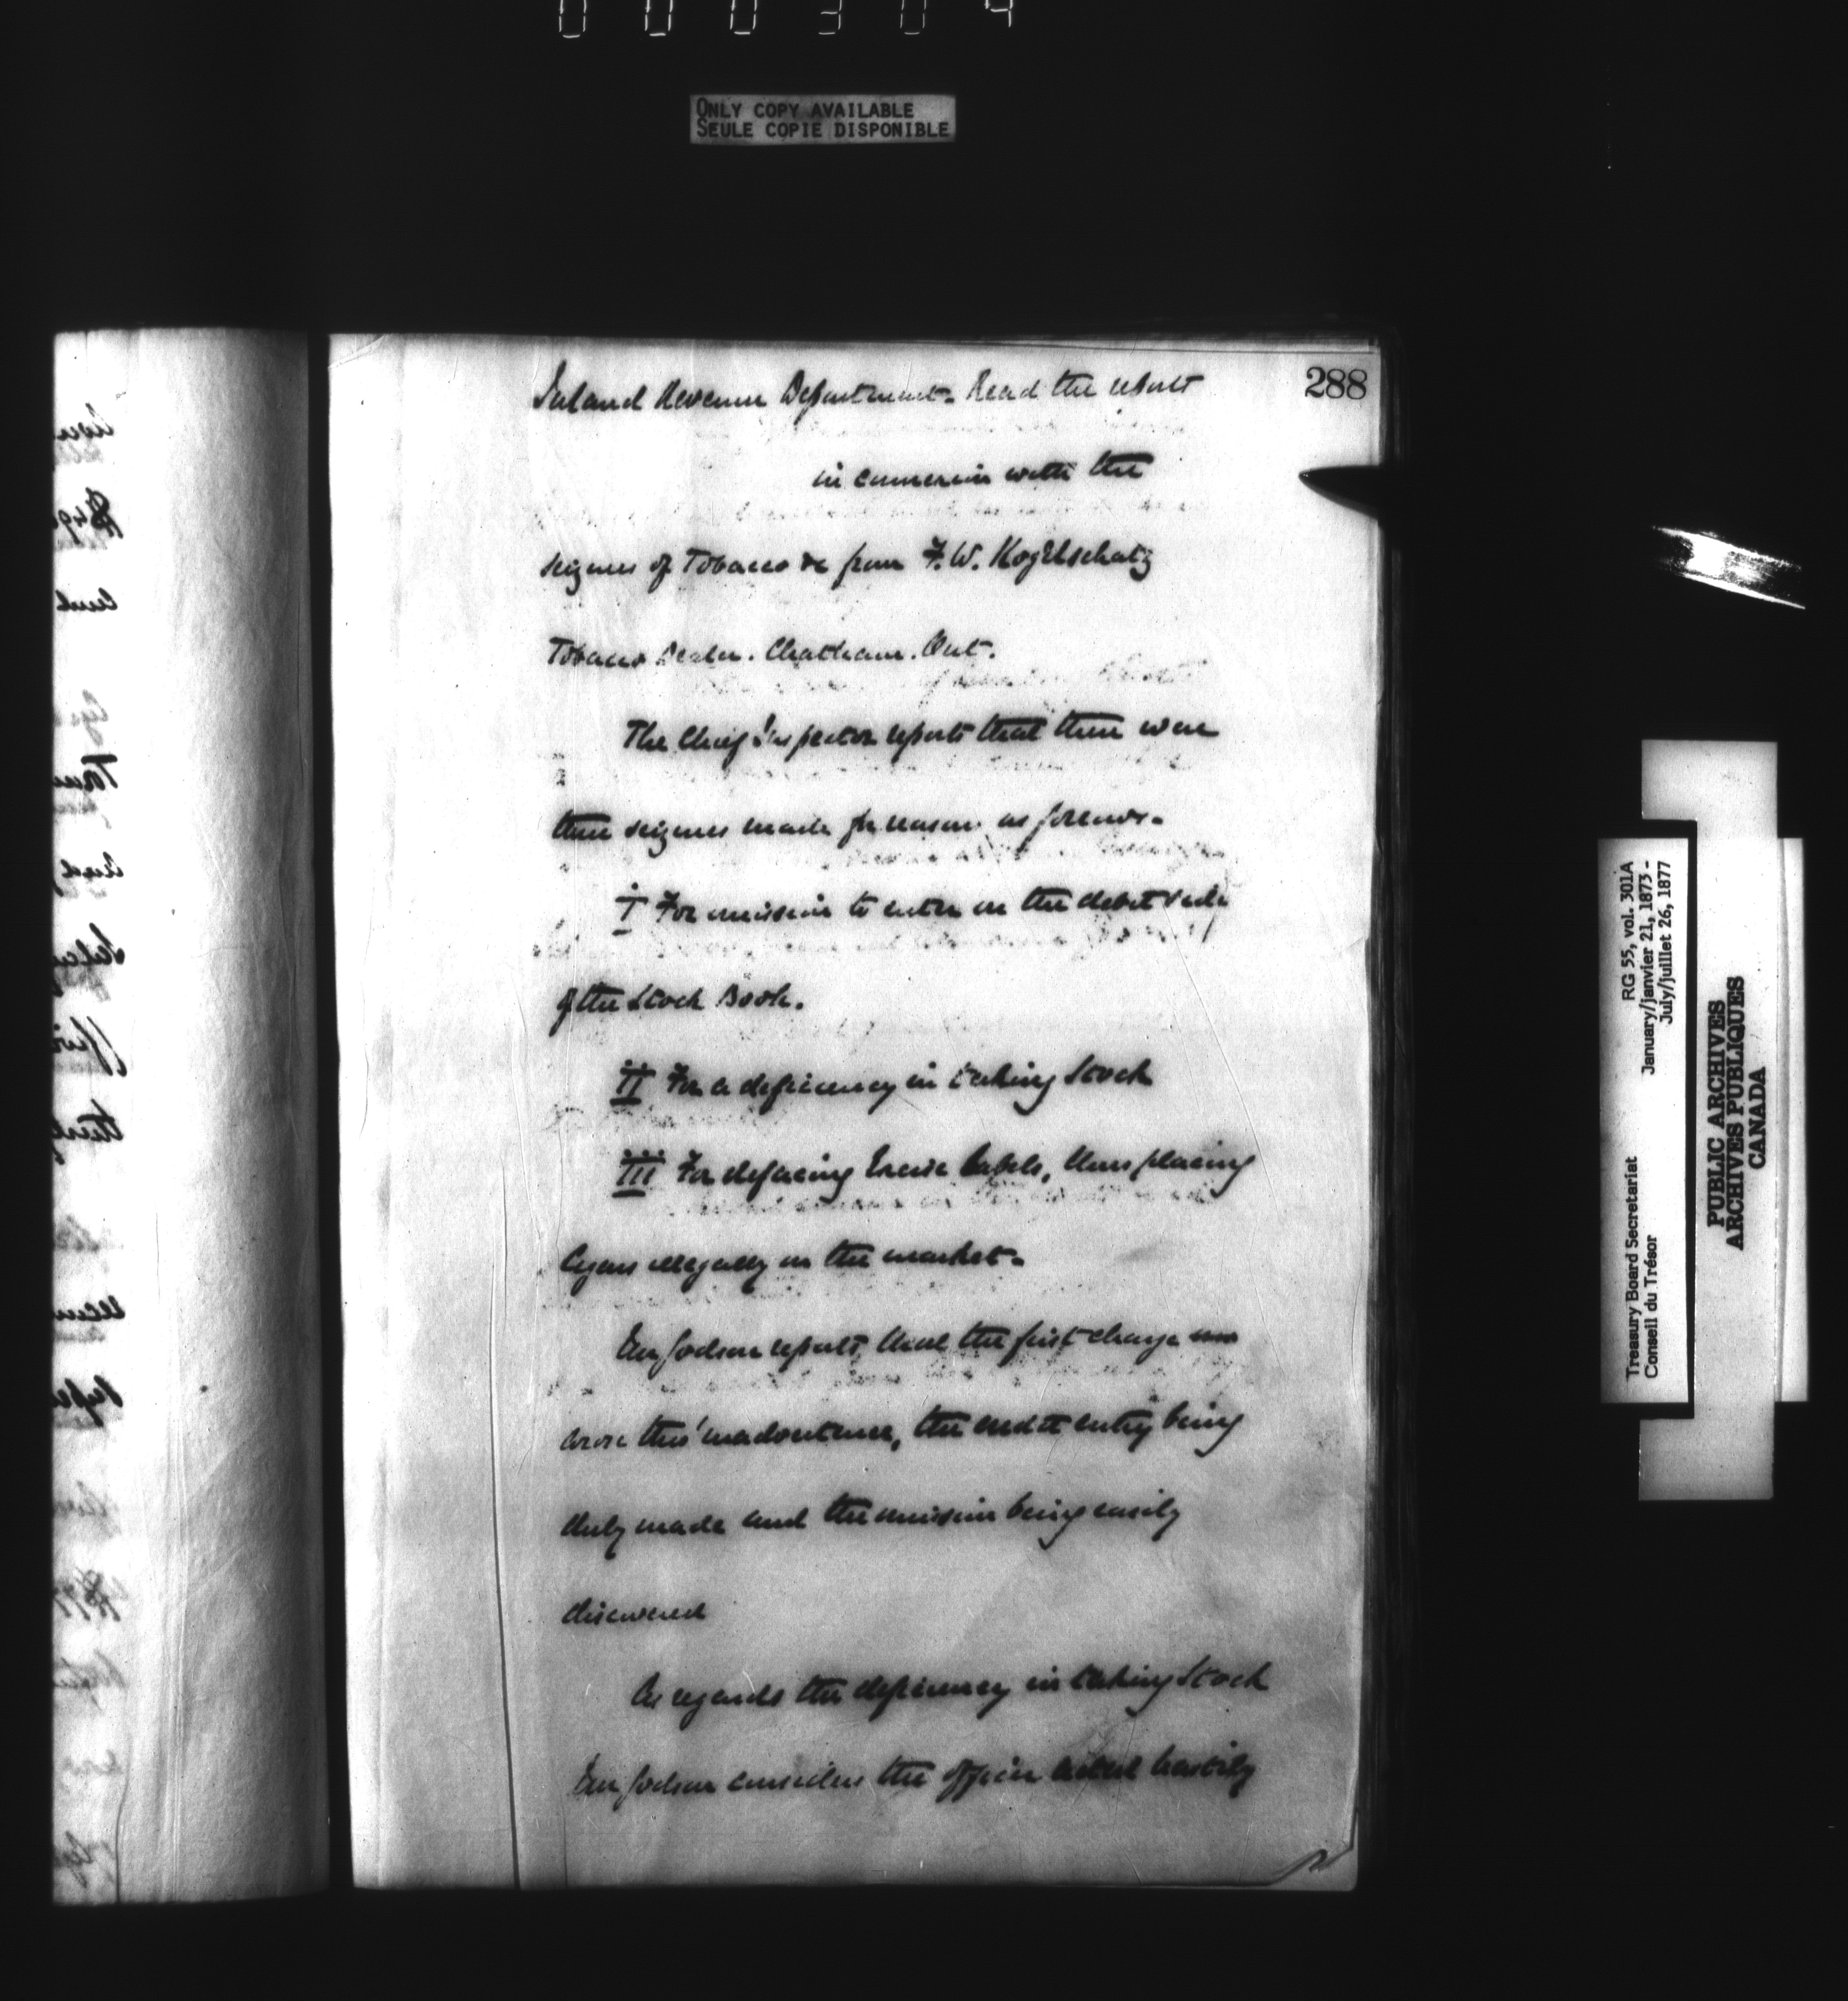 0 0 0 3 0 4
ONLY COPY AVAILABLE
SEULE COPIE DISPONIBLE
288
Inland Revenue Department. Read the report
in connexion with the
seizures of Tobacco &c from F. W. Kogelschatz
Tobacco Dealer. Chatham. Ont.
The Chief Inspector reports that there were
three seizures made for reasons as follows.
I For omission to enter on the debit side
of the Stock Book.
II For a deficiency in taking Stock
III For defacing Excise labels, thus placing
Cigars illegally on the market.
Mr Godson reports, that the first charge
arose thro' inadvertence, the credit entry being
duly made and the omission being easily
discovered
As regards the deficiency in taking Stock
Mr Godson considers the officer acted hastily
RG 55, vol. 301A
January/janvier 21, 1873 -
July/juillet 26, 1877
Treasury Board Secretariat
Conseil du Trésor
PUBLIC ARCHIVES
ARCHIVES PUBLIQUES
CANADA